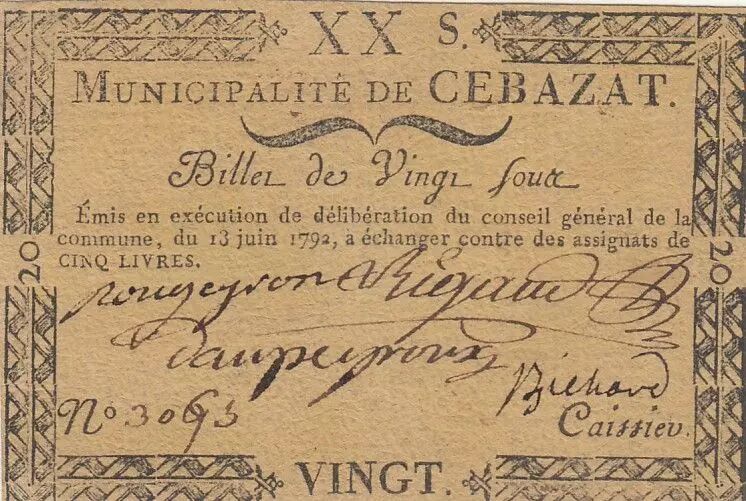 XX S.
MUNICIPALITÉ DE CEBAZAT.
Billet de Vingt sous
Émis en exécution de délibération du conseil général de la
commune, du 13 juin 1792, à échanger contre des assignats de
CINQ LIVRES.
20
20
Rigaud
Bichard
No 3093
Caissier.
VINGT.